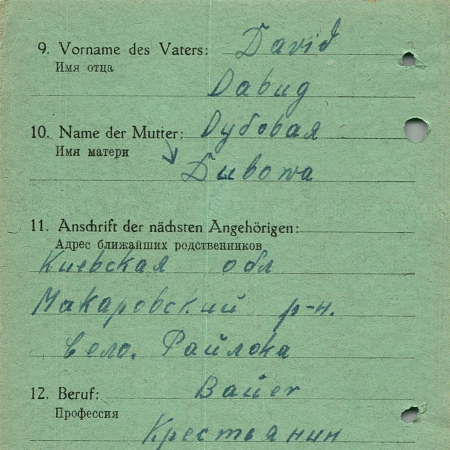 9. Vorname des Vaters: David
Имя отца
Давид
10. Name der Mutter: Дубовая
Имя матери
Dubowa
11. Anschrift der nächsten Angehörigen:
Адрес ближайших родственников
Киевская обл
Макаровский р-н.
село. Файлока
12. Beruf: Bauer
Профессия
Крестьянин